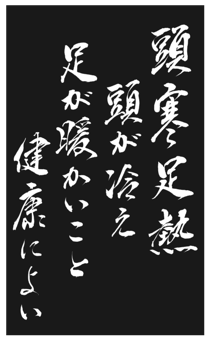 頭寒足熱
頭が冷え
足が暖かいこと
健康によい